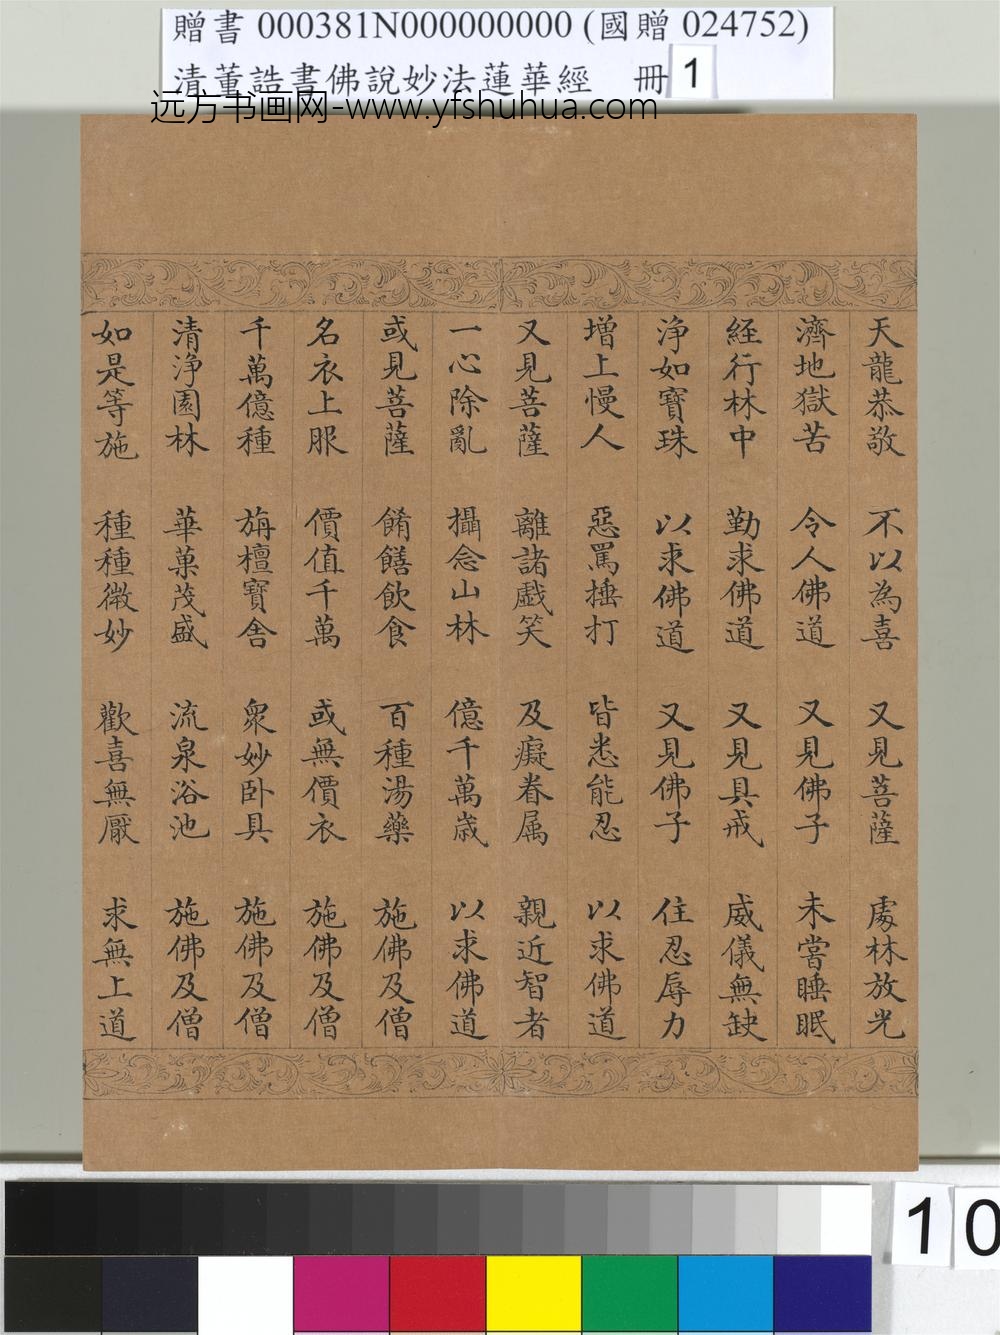 贈書 000381N000000000 (國贈 024752)
清董誥書佛說妙法蓮華經 冊 1
远方书画网-www.yfshuhua.com
天龍恭敬 不以為喜 又見菩薩 處林放光
濟地獄苦 令人佛道 又見佛子 未嘗睡眠
經行林中 勤求佛道 又見具戒 威儀無缺
淨如寶珠 以求佛道 又見佛子 住忍辱力
增上慢人 惡罵捶打 皆悉能忍 以求佛道
又見菩薩 離諸戲笑 及癡眷属 親近智者
一心除亂 攝念山林 億千萬歲 以求佛道
或見菩薩 餚饍飲食 百種湯藥 施佛及僧
名衣上服 價值千萬 或無價衣 施佛及僧
千萬億種 旃檀寶舍 眾妙卧具 施佛及僧
清淨園林 華菓茂盛 流泉浴池 施佛及僧
如是等施 種種微妙 歡喜無厭 求無上道
10